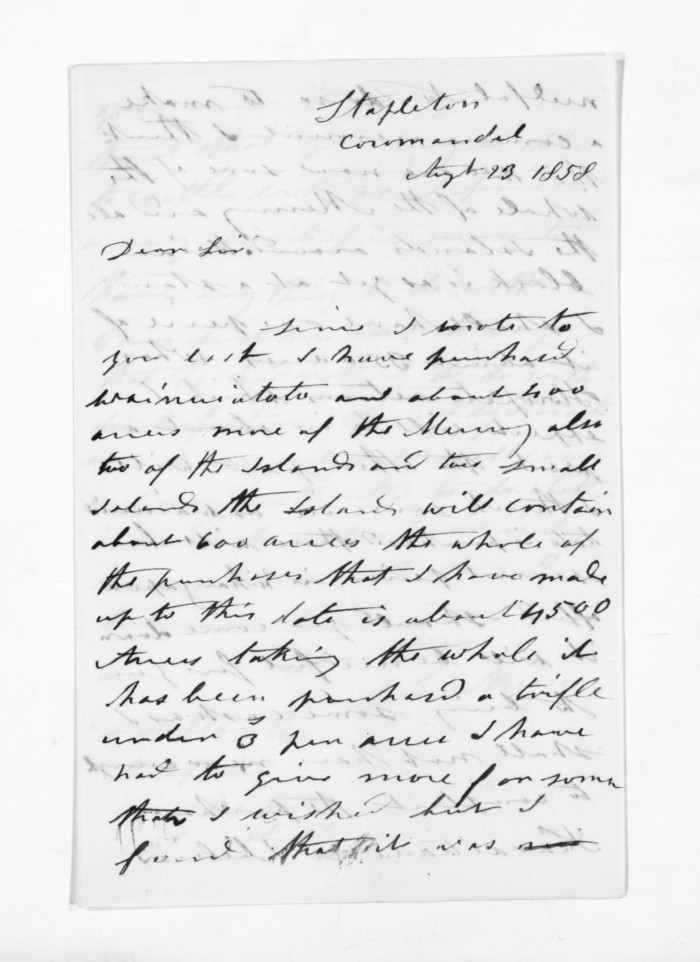 Stapleton
Coromandel
Augt 23 1858
Dear Sir
Since I wrote to
you last I have purchased
and about 400
acres more of the Mercury also
two of the Islands and two small
Islands the Islands will contain
about 600 acres the whole of
the purchases that I have made
up to this date is about 4500
Acres taking the whole it
has been purchasd a trifle
under 3 per acre I have
had to give more for some
than I wished but I
found that it was